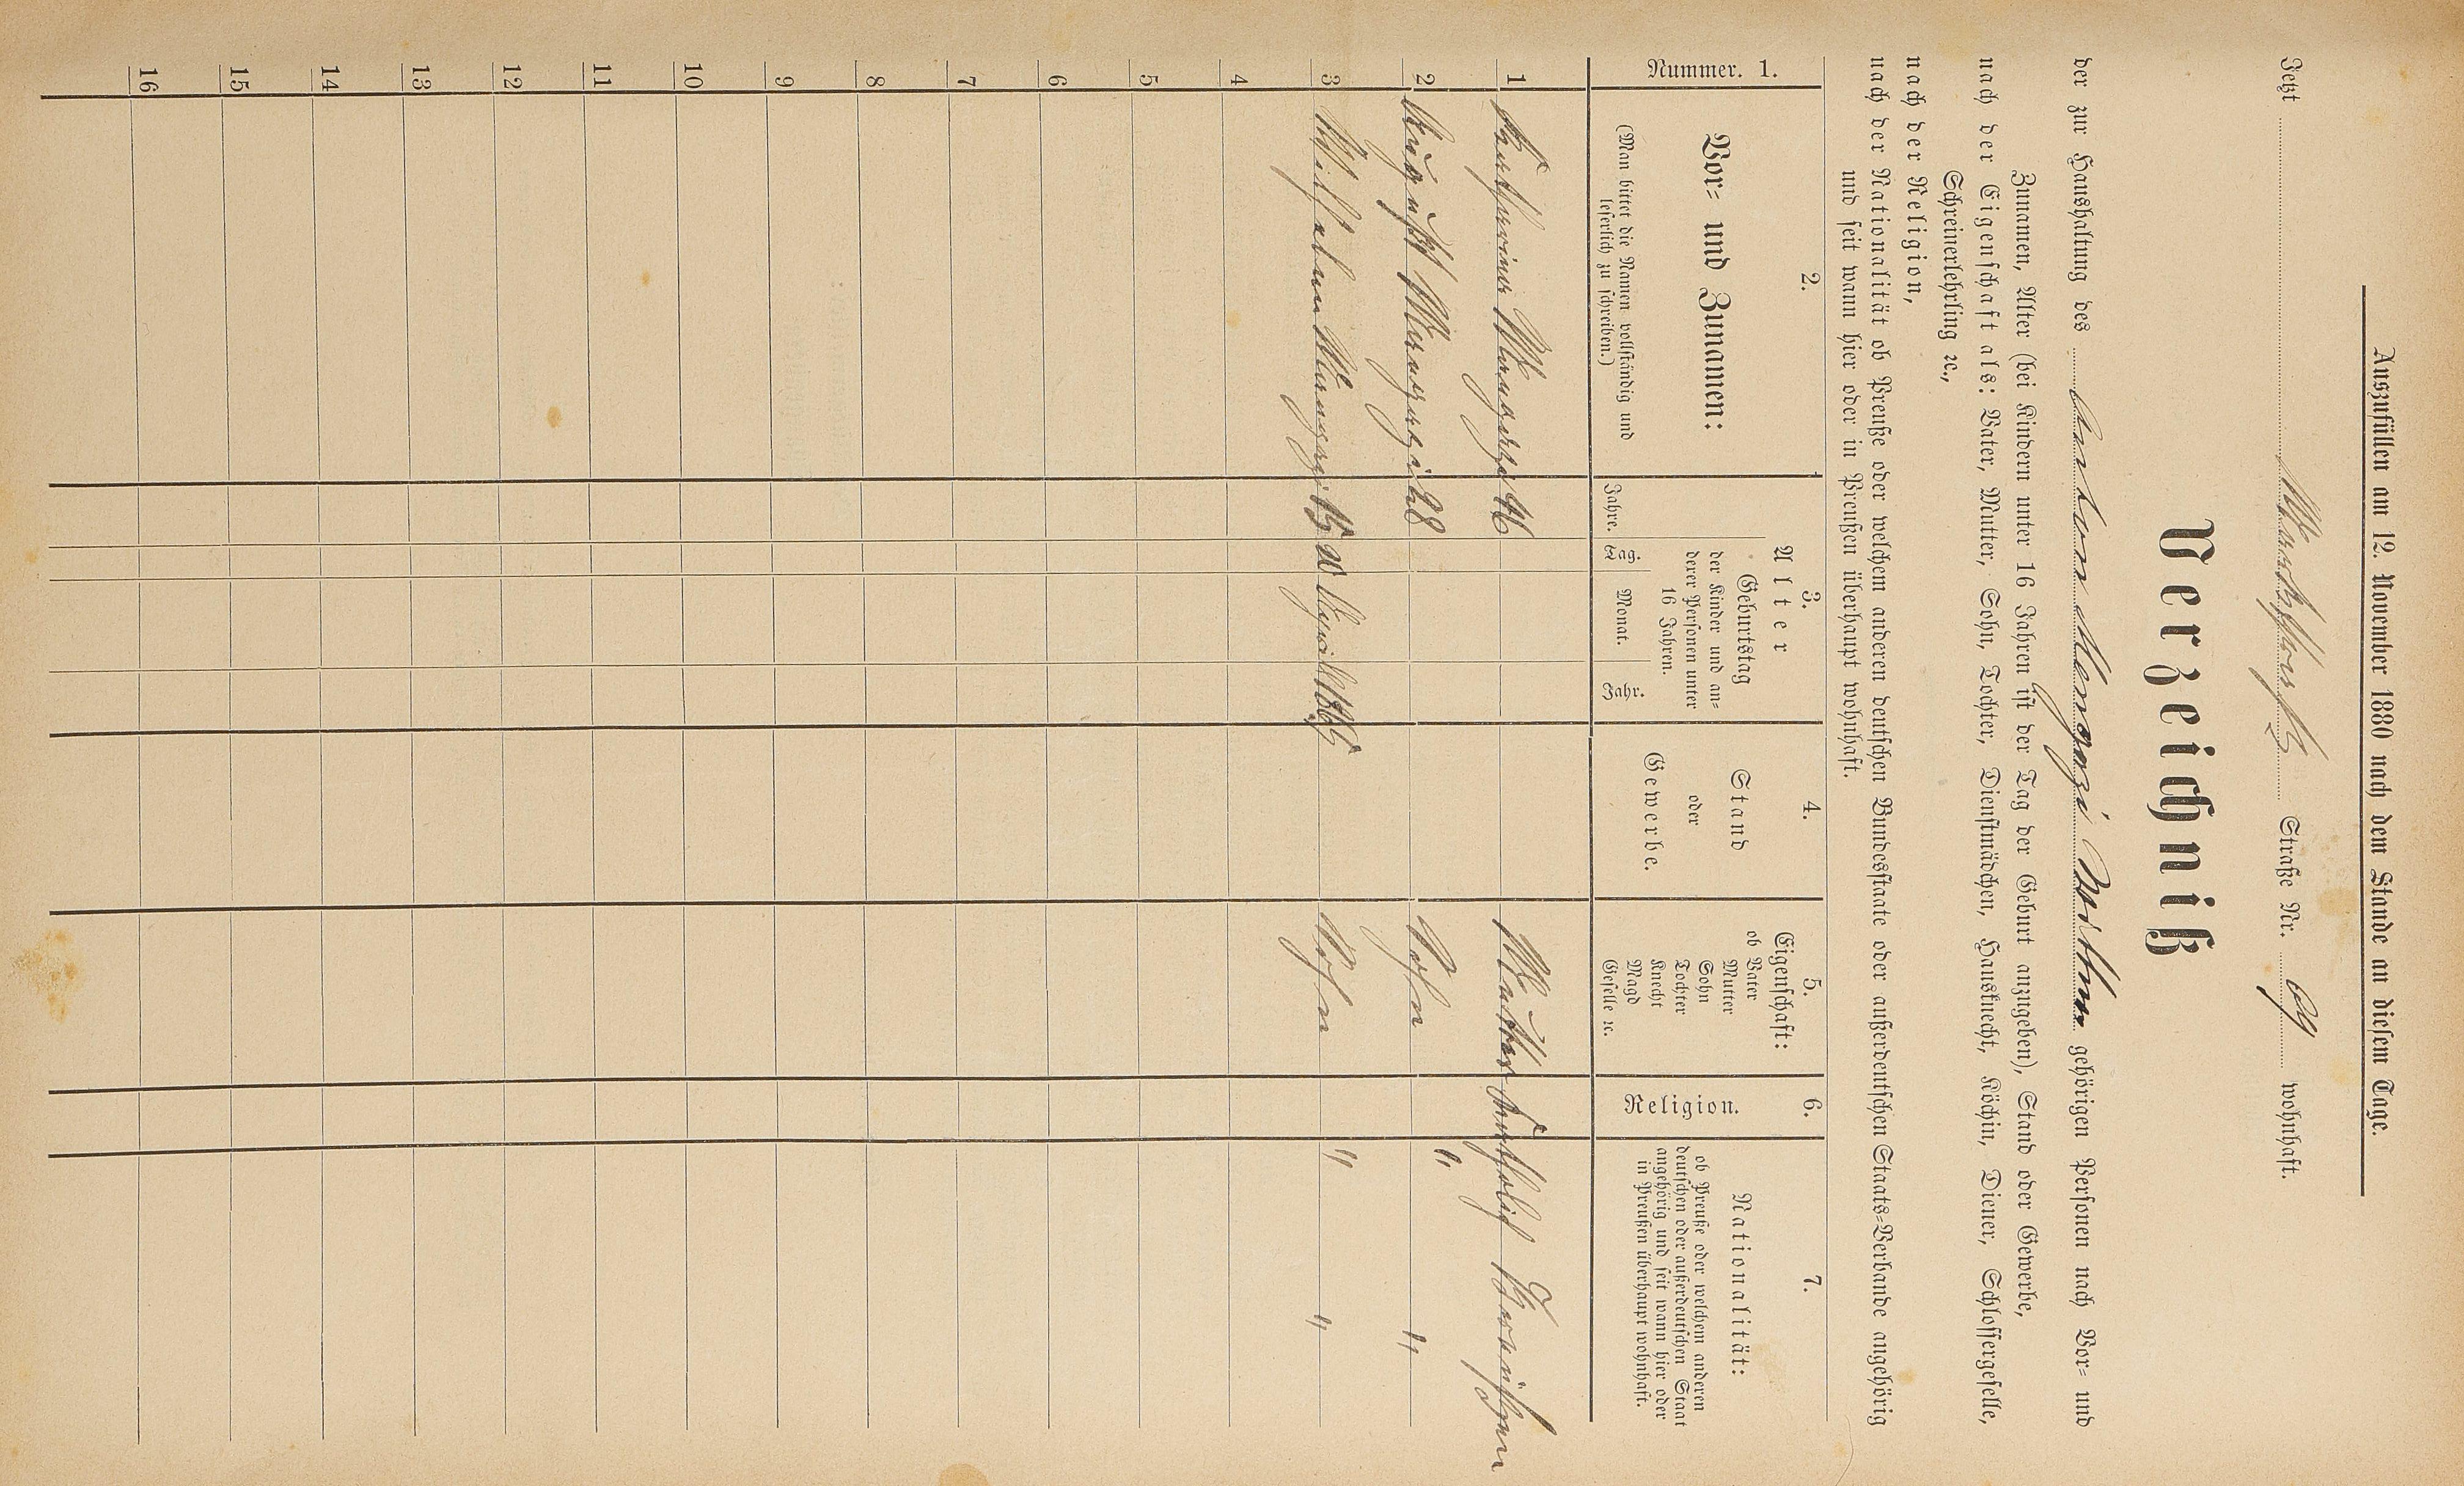 Auszufüllen am 12. November 1880 nach dem Stande an diesem Tage.
Jetzt Marktstraß Straße Nr. 69 wohnhaft.
Verzeichniß
der zur Haushaltung des Anton Mengozzi Wittwe gehörigen Personen nach Vor- und
Zunamen, Alter (bei Kindern unter 16 Jahren ist der Tag der Geburt anzugeben), Stand oder Gewerbe,
nach der Eigenschaft als: Vater, Mutter, Sohn, Tochter, Dienstmädchen, Hausknecht, Köchin, Diener, Schlossergeselle,
Schreinerlehrling ꝛc.,
nach der Religion,
nach der Nationalität ob Preuße oder welchem anderen deutschen Bundesstaate oder außerdeutschen Staats-Verbande angehörig
und seit wann hier oder in Preußen überhaupt wohnhaft.
Nummer. 1.
2.
Vor- und Zunamen:
(Man bittet die Namen vollständig und
leserlich zu schreiben.)
3.
Alter
Jahre.
Geburtstag
der Kinder und an-
derer Personen unter
16 Jahren.
Tag. Monat. Jahr.
4.
Stand
oder
Gewerbe.
5.
Eigenschaft:
ob Vater
Mutter
Sohn
Tochter
Knecht
Magd
Geselle ꝛc.
6.
Religion.
7.
Nationalität:
ob Preuße oder welchem anderen
deutschen oder außerdeutschen Staat
angehörig und seit wann hier oder
in Preußen überhaupt wohnhaft.
1 Katharina Mengozzi 46 Mutter Katholisch Preußen
2 August Mengozzi 28 Sohn " "
3 Wilhelm Mengozzi 15 20 April 1865 Sohn " "
4
5
6
7
8
9
10
11
12
13
14
15
16